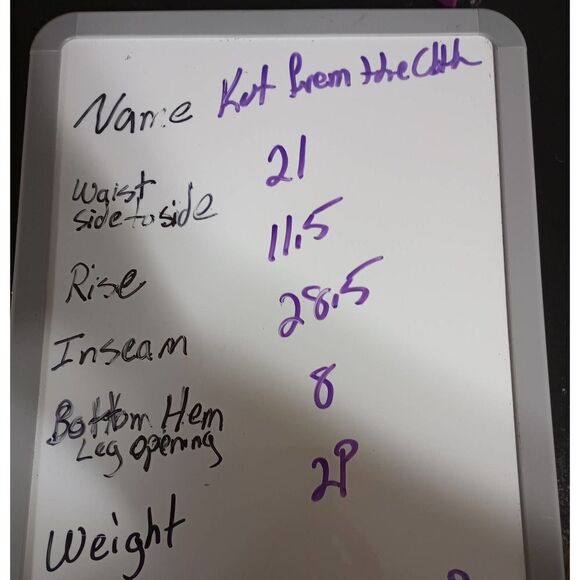 Name Kut from the Clth
Waist 21
side to side
Rise 11.5
Inseam 28.5
Bottom Hem 8
Leg opening
Weight